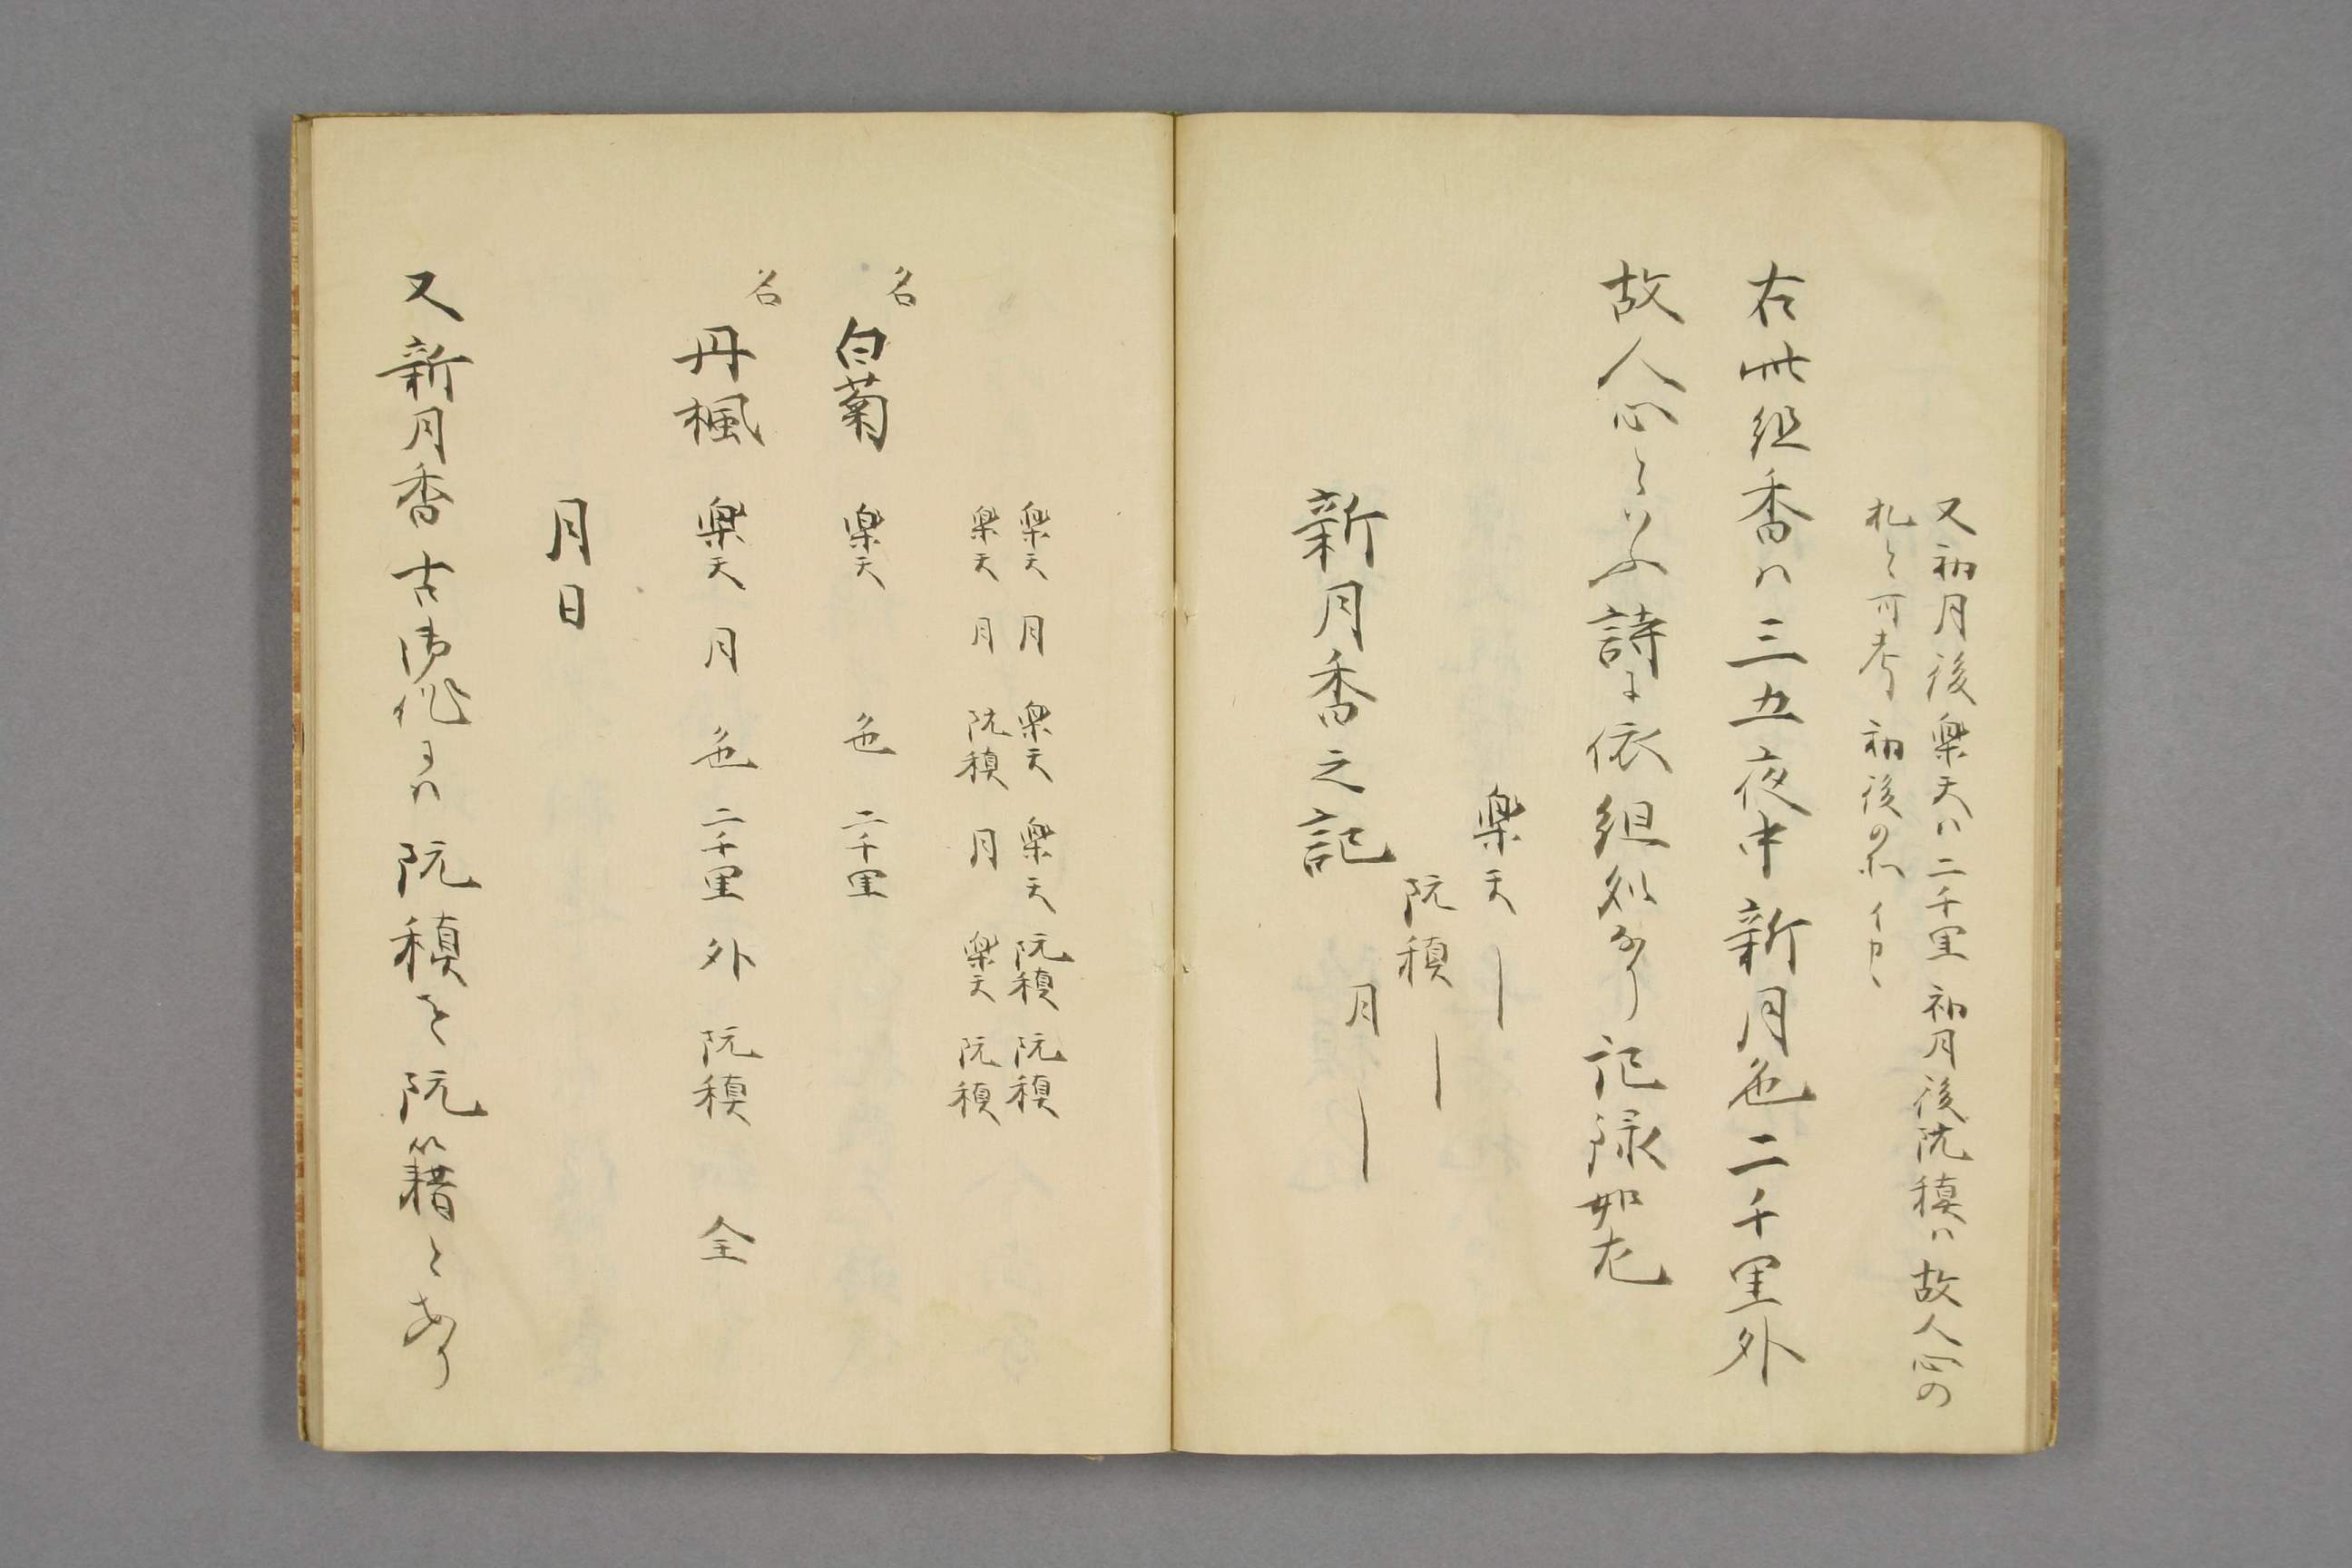 又初月後楽天ハ二千里初月後阮稹ハ故人心の
札と可考初後の示イカヽ
右此組香ハ三五夜中新月色二千里外
故人心といふ詩に依組処なり記録如左
楽天
阮稹
月
新月香之記
楽天 月 楽天 楽天 阮稹 阮稹
楽天 月 阮稹 月 楽天 阮稹
名
白菊 楽天 色 二千里
名
丹楓 楽天 月 色 二千里 外 阮稹 全
月日
又新月香古御作にハ阮稹を阮籍とあり